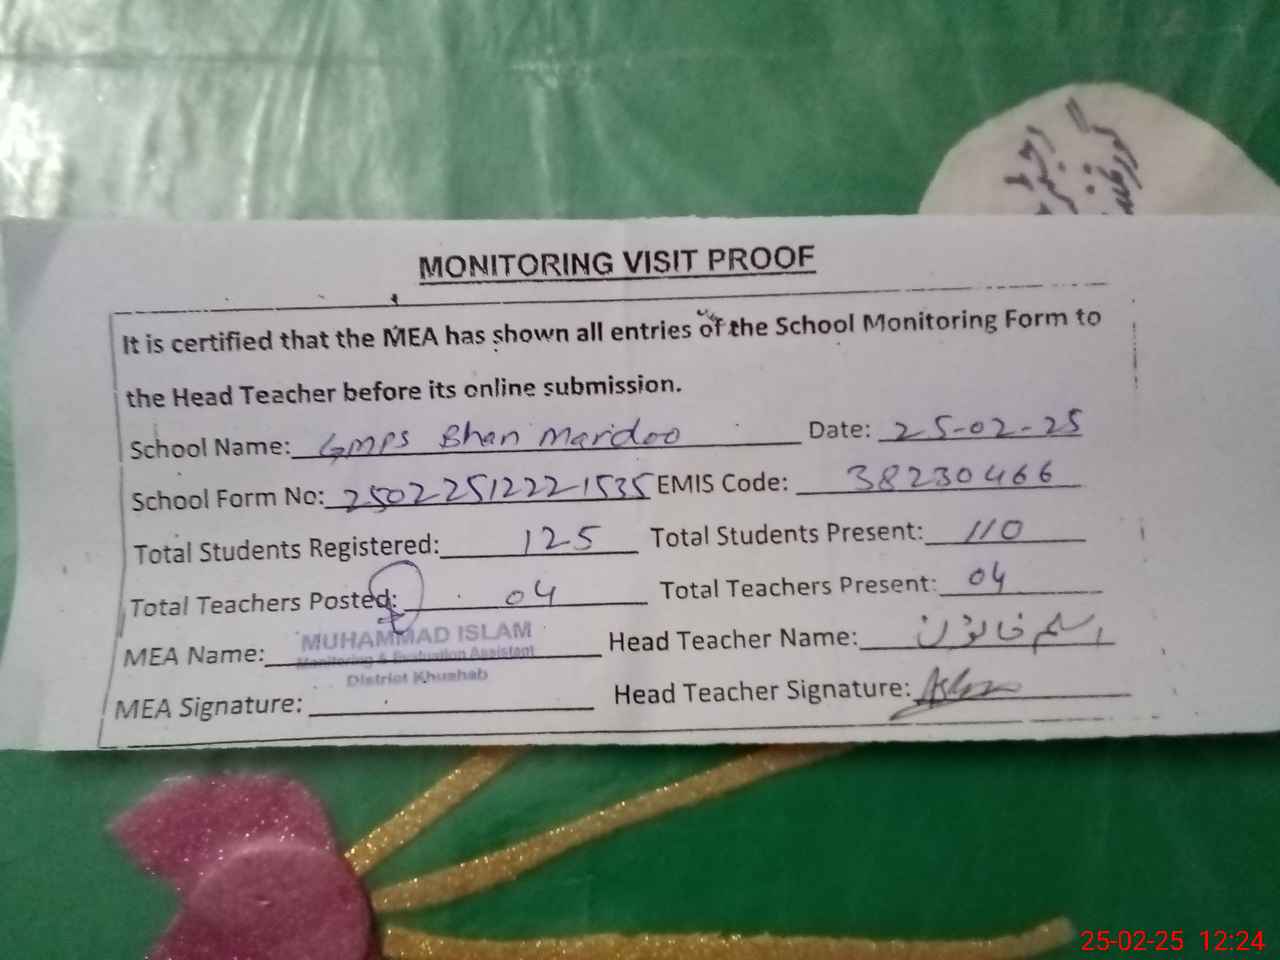 MONITORING VISIT PROOF
It is certified that the MEA has shown all entries of the School Monitoring Form to
the Head Teacher before its online submission.
School Name: GMPS Bhan Mardoo Date: 25-02-25
School Form No: 25022512221535 EMIS Code: 38230466
Total Students Registered: 125 Total Students Present: 110
Total Teachers Posted: 04 Total Teachers Present: 04
MEA Name: MUHAMMAD ISLAM Head Teacher Name: اسلم خاتون
Monitoring & Evaluation Assistant
District Khushab
MEA Signature: Head Teacher Signature:
25-02-25 12:24